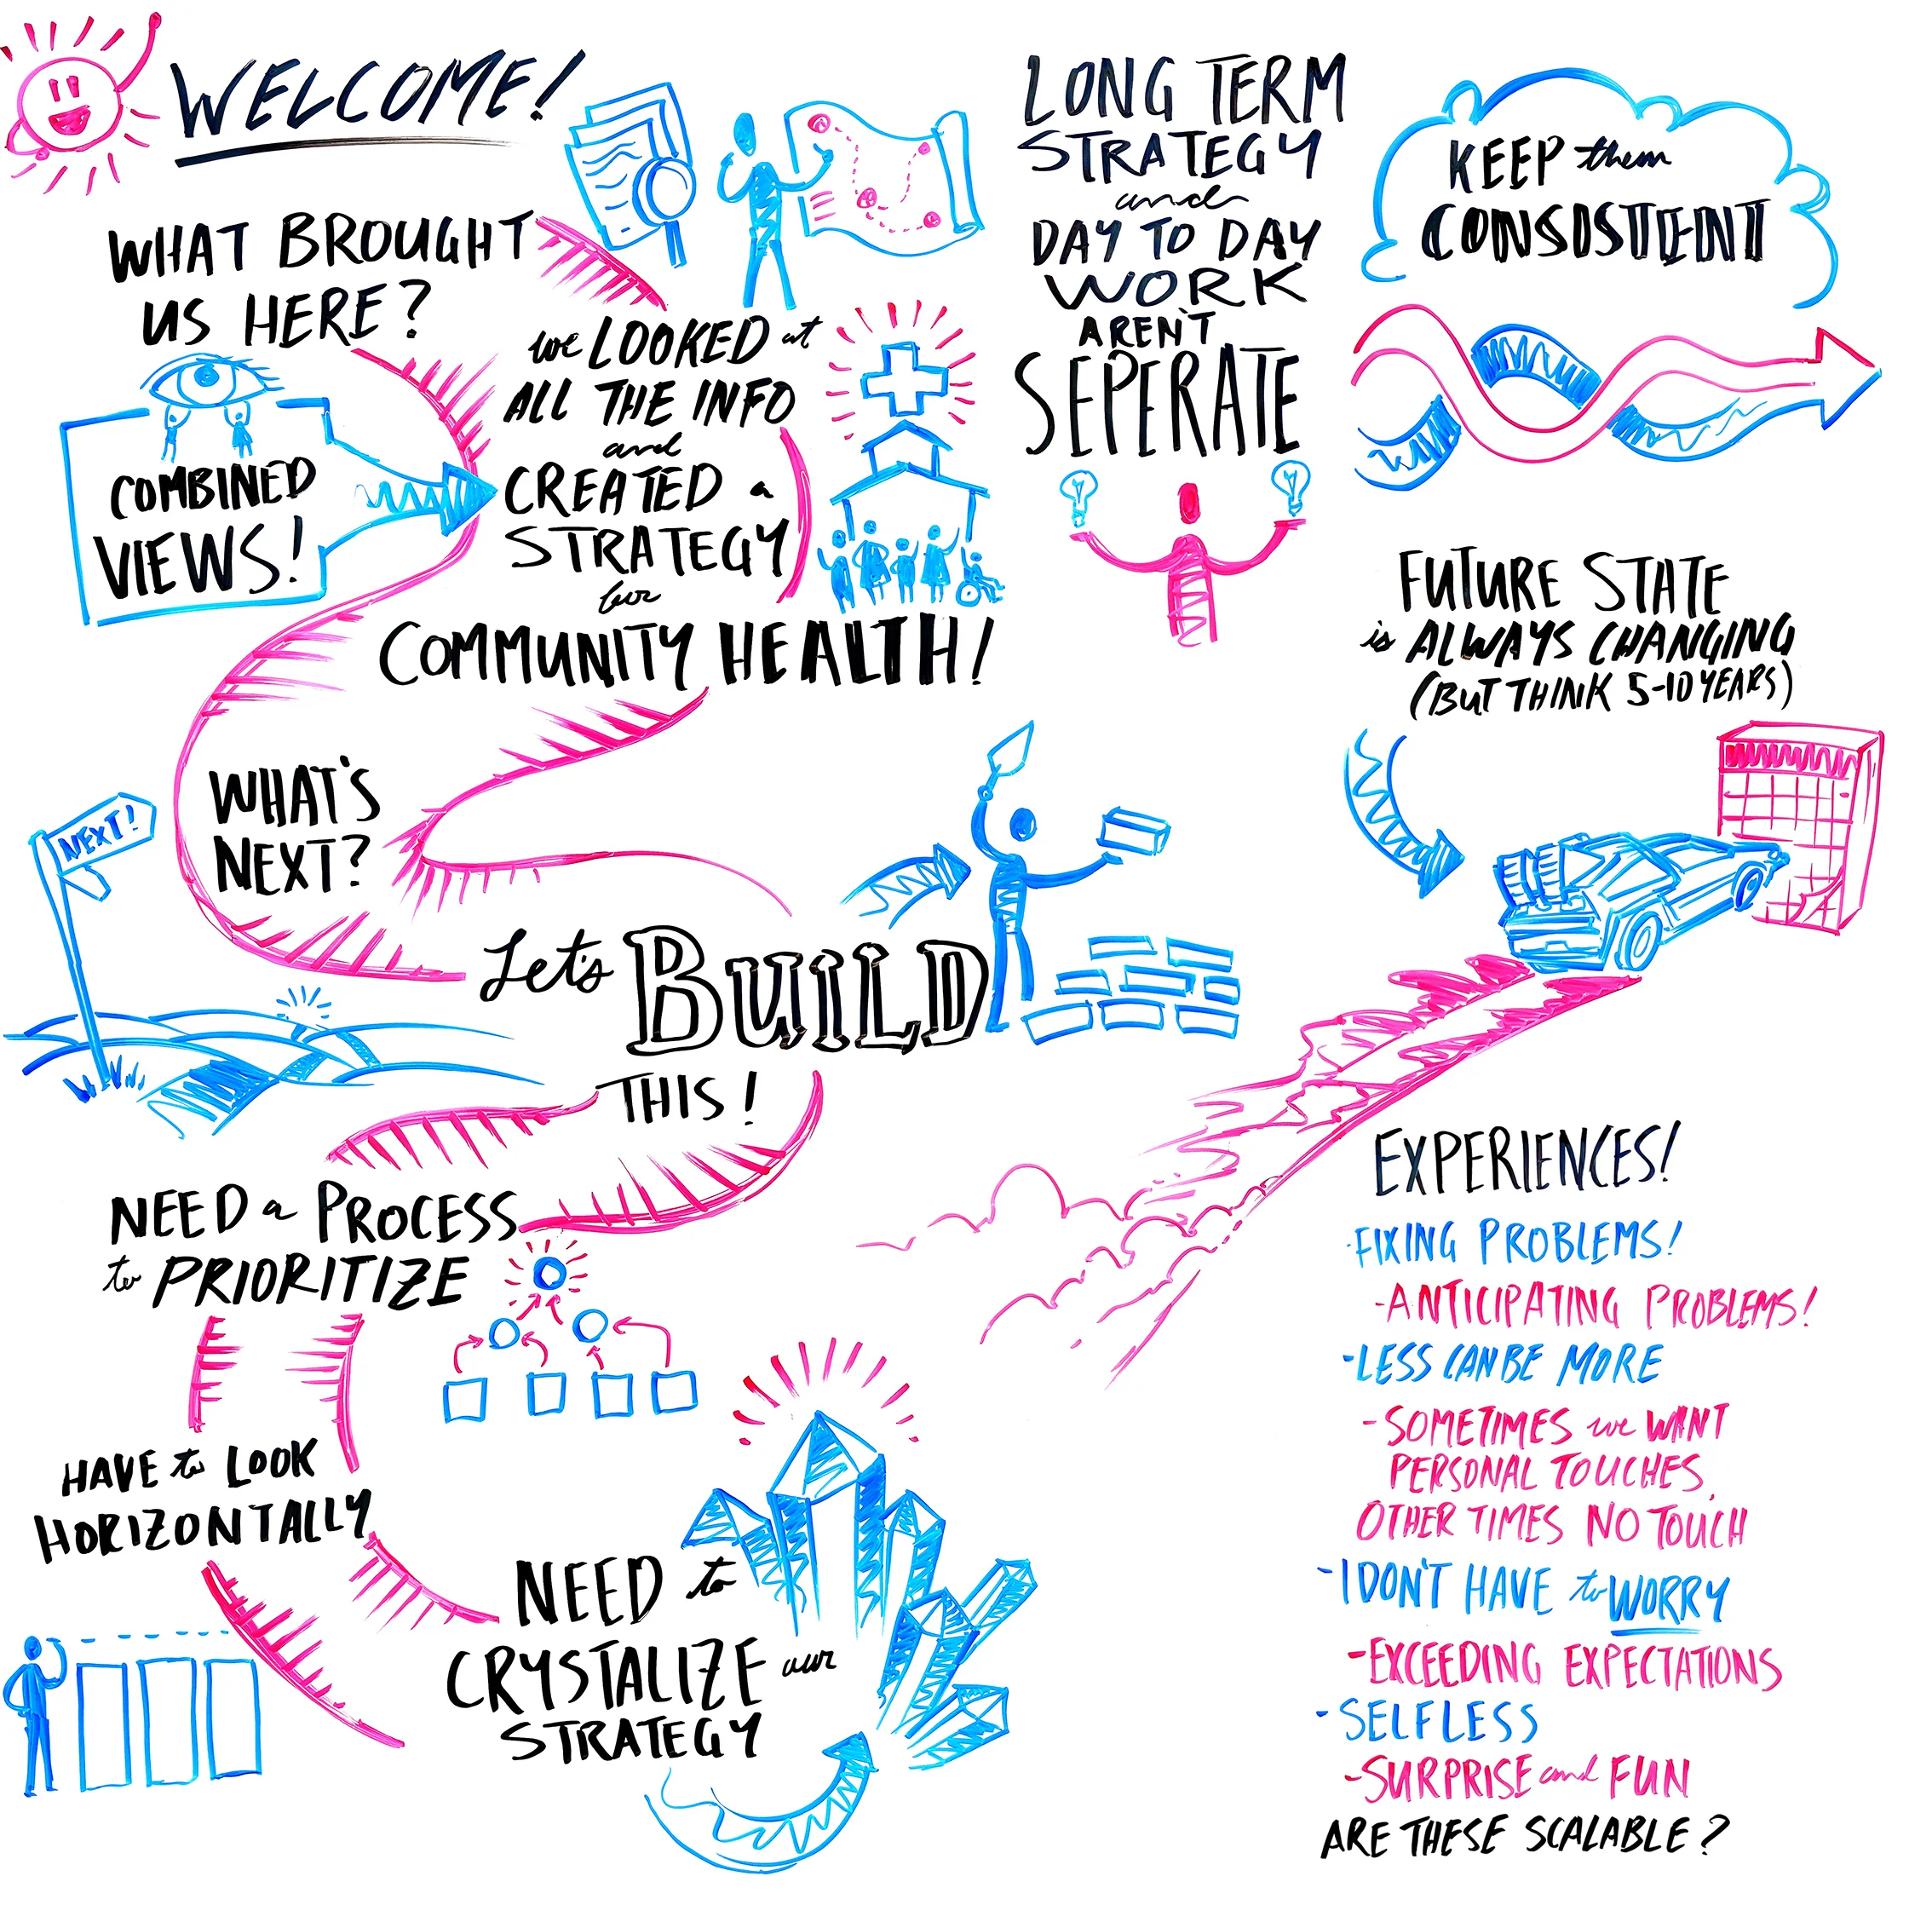 WELCOME!
WHAT BROUGHT
US HERE?
COMBINED
VIEWS!
we LOOKED at
ALL THE INFO
and
CREATED a
STRATEGY
for
COMMUNITY HEALTH!
WHAT'S
NEXT?
NEXT!
Let's BUILD
THIS!
NEED a PROCESS
to PRIORITIZE
HAVE to LOOK
HORIZONTALLY
NEED to
CRYSTALIZE our
STRATEGY
LONG TERM
STRATEGY
and
DAY TO DAY
WORK
AREN'T
SEPERATE
KEEP them
CONSISTENT
FUTURE STATE
is ALWAYS CHANGING
(BUT THINK 5-10 YEARS)
EXPERIENCES!
·FIXING PROBLEMS!
-ANTICIPATING PROBLEMS!
-LESS CAN BE MORE
-SOMETIMES we WANT
PERSONAL TOUCHES,
OTHER TIMES NO TOUCH
-I DON'T HAVE to WORRY
-EXCEEDING EXPECTATIONS
-SELFLESS
-SURPRISE and FUN
ARE THESE SCALABLE?